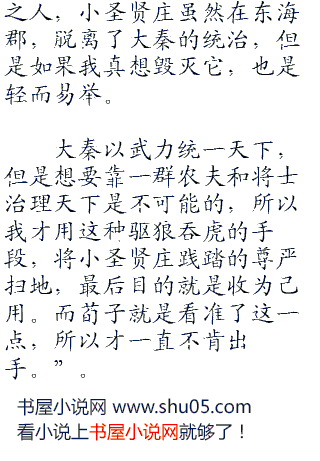 之人，小圣贤庄虽然在东海
郡，脱离了大秦的统治，但
是如果我真想毁灭它，也是
轻而易举。
大秦以武力统一天下，
但是想要靠一群农夫和将士
治理天下是不可能的，所以
我才用这种驱狼吞虎的手
段，将小圣贤庄践踏的尊严
扫地，最后目的就是收为己
用。而荀子就是看准了这一
点，所以才一直不肯出
手。”。
书屋小说网 www.shu05.com
看小说上书屋小说网就够了！